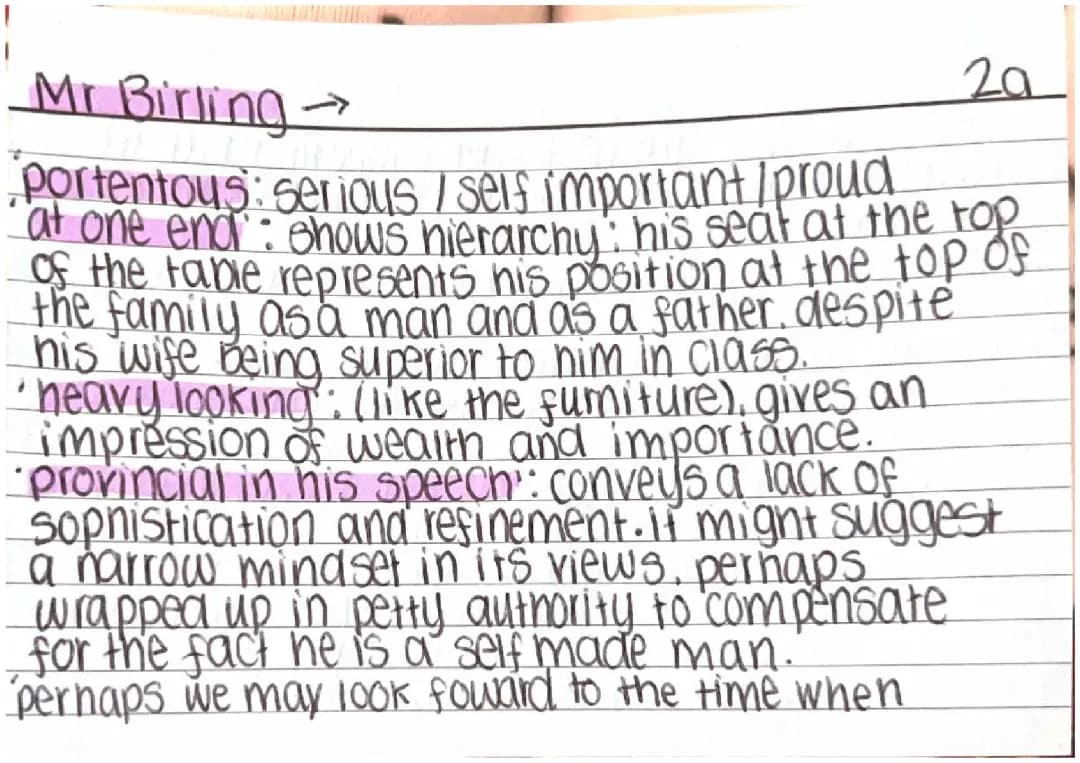 Mr Birling → 2a
'portentous: serious / self important / proud
'at one end': shows hierarchy: his seat at the top
of the table represents his position at the top of
the family as a man and as a father. despite
his wife being superior to him in class.
'heavy looking': (like the furniture). gives an
impression of wealth and importance.
'provincial in his speech': conveys a lack of
sophistication and refinement. it might suggest
a narrow mindset in its views. perhaps
wrapped up in petty authority to compensate
for the fact he is a self made man.
'perhaps we may look foward to the time when